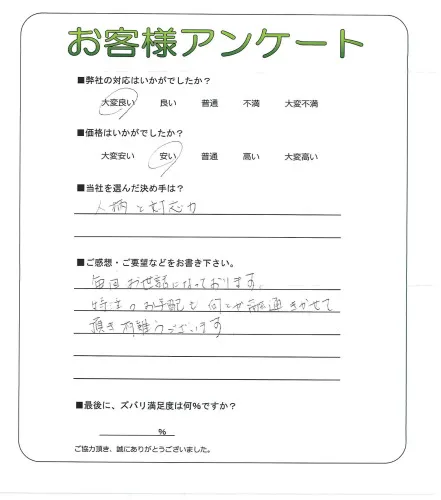 お客様アンケート
■弊社の対応はいかがでしたか？
大変良い 良い 普通 不満 大変不満
■価格はいかがでしたか？
大変安い 安い 普通 高い 大変高い
■当社を選んだ決め手は？
人柄と対応力
■ご感想・ご要望などをお書き下さい。
毎回お世話になっております。
特主のお手配も何とか融通きかせて
頂き有難うございます
■最後に、ズバリ満足度は何%ですか？
%
ご協力頂き、誠にありがとうございました。